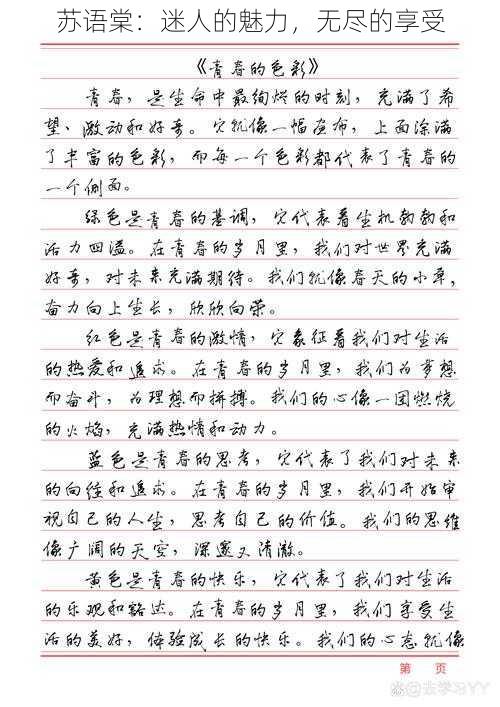 苏语棠：迷人的魅力，无尽的享受
《青春的色彩》
青春，是生命中最绚烂的时刻，充满了希
望、激动和好奇。它就像一幅画布，上面涂满
了丰富的色彩，而每一个色彩都代表了青春的
一个侧面。
绿色是青春的基调，它代表着生机勃勃和
活力四溢。在青春的岁月里，我们对世界充满
好奇，对未来充满期待。我们就像春天的小草，
奋力向上生长，欣欣向荣。
红色是青春的激情，它象征着我们对生活
的热爱和追求。在青春的岁月里，我们为梦想
而奋斗，为理想而拼搏。我们的心像一团燃烧
的火焰，充满热情和动力。
蓝色是青春的思考，它代表了我们对未来
的向往和追求。在青春的岁月里，我们开始审
视自己的人生，思考自己的价值。我们的思维
像广阔的天空，深邃又清澈。
黄色是青春的快乐，它代表了我们对生活
的乐观和豁达。在青春的岁月里，我们享受生
活的美好，体验成长的快乐。我们的心态就像
第 页
@去学习YY